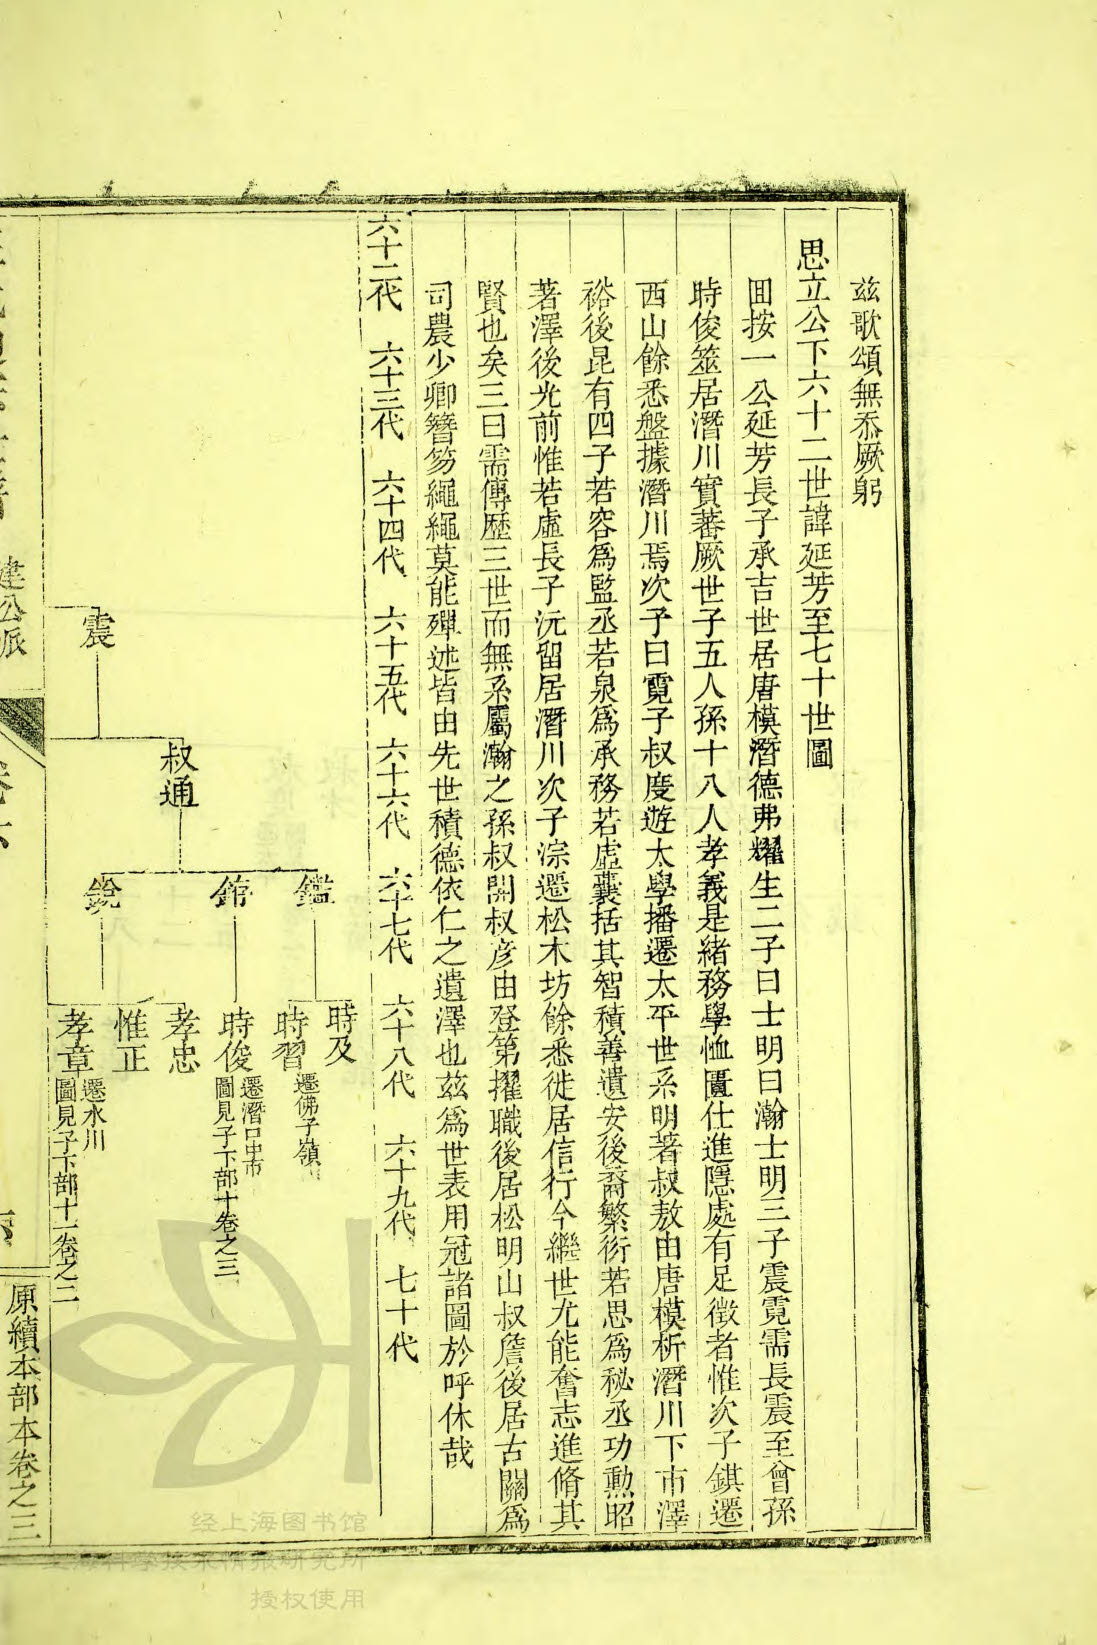 茲歌頌無忝厥躬
思立公下六十二世諱延芳至七十世圖
按一公延芳長子承吉世居唐模潛德弗耀生二子曰士明曰瀚士明三子震霓需長震至曾孫
時俊筮居潛川實蕃厥世子五人孫十八人孝義是緒務學恤匱仕進隱處有足徵者惟次子錤遷
西山餘悉盤據潛川焉次子曰霓子叔度遊太學播遷太平世系明著叔敖由唐模析潛川下市澤
裕後昆有四子若容為監丞若泉為承務若虛囊括其智積善遺安後裔繁衍若思為秘丞功勲昭
著澤後光前惟若虛長子沅留居潛川次子淙遷松木坊餘悉徙居信行今繼世尤能奮志進脩其
賢也矣三曰需傳歷三世而無系屬瀚之孫叔開叔彥由登第擢職後居松明山叔詹後居古關為
司農少卿簪笏繩繩莫能殫述皆由先世積德依仁之遺澤也茲為世表用冠諸圖於呼休哉
六十二代 六十三代 六十四代 六十五代 六十六代 六十七代 六十八代 六十九代 七十代
震
叔通
鑑
錧
銳
時及
時習 遷佛子嶺
時俊 遷潛口中市
圖見子下部十卷之三
孝忠
惟正
孝章 遷水川
圖見子下部十一卷之二
建公派
原續本部本卷之三
经上海图书馆
上海科学技术情报研究所
授权使用